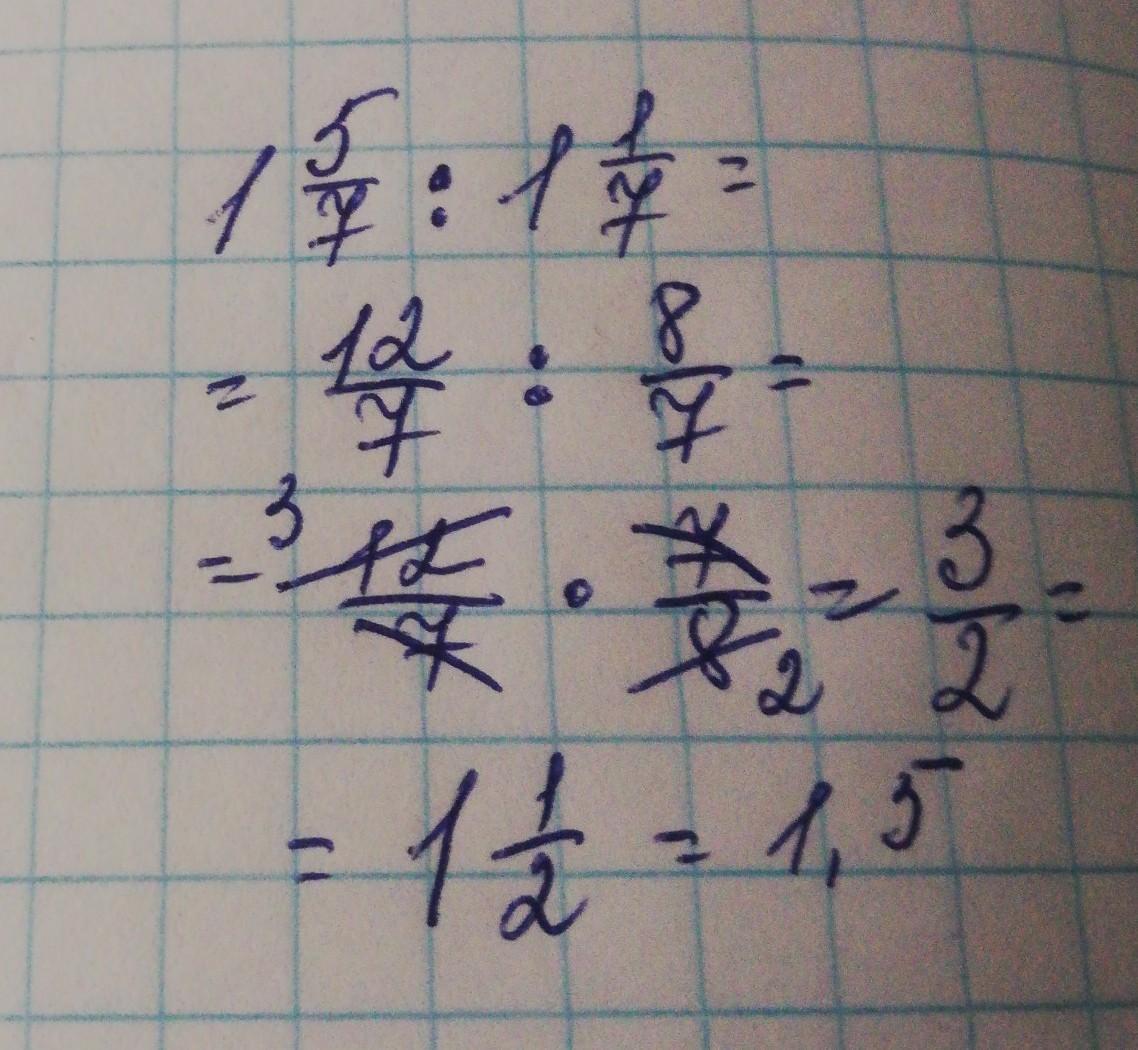 1 5/7 : 1 1/7 =
= 12/7 : 8/7 =
= 3 12/7 · 7/8 2 = 3/2 =
= 1 1/2 = 1,5